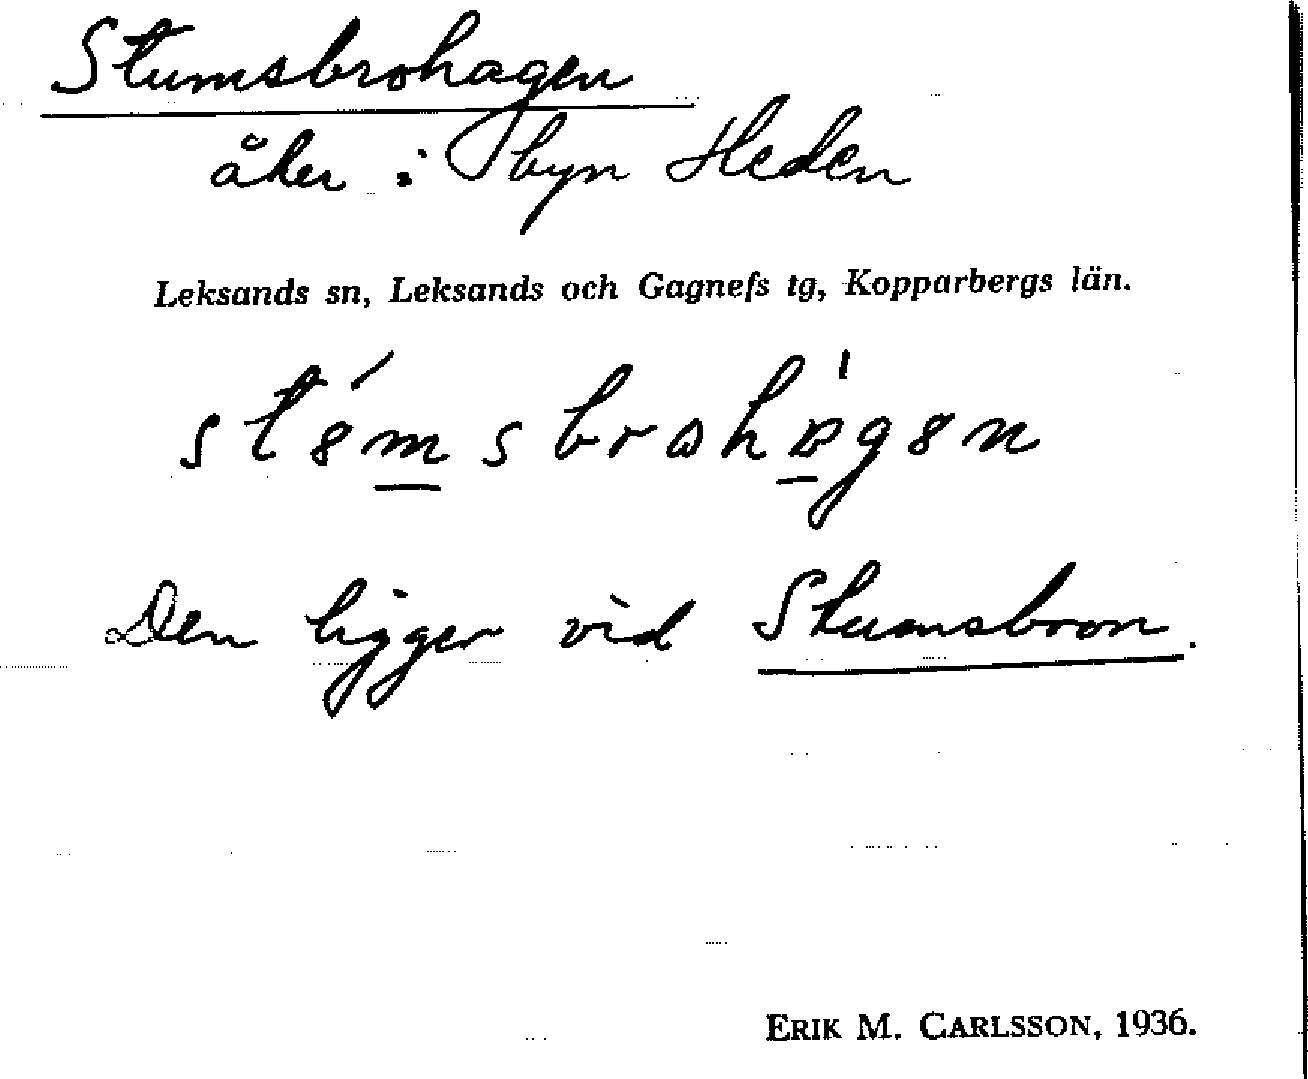 Stumsbrohagen
åker i byn Heden
Leksands sn, Leksands och Gagnefs tg, Kopparbergs län.
Den ligger vid Stumsbron.
ERIK M. CARLSSON, 1936.